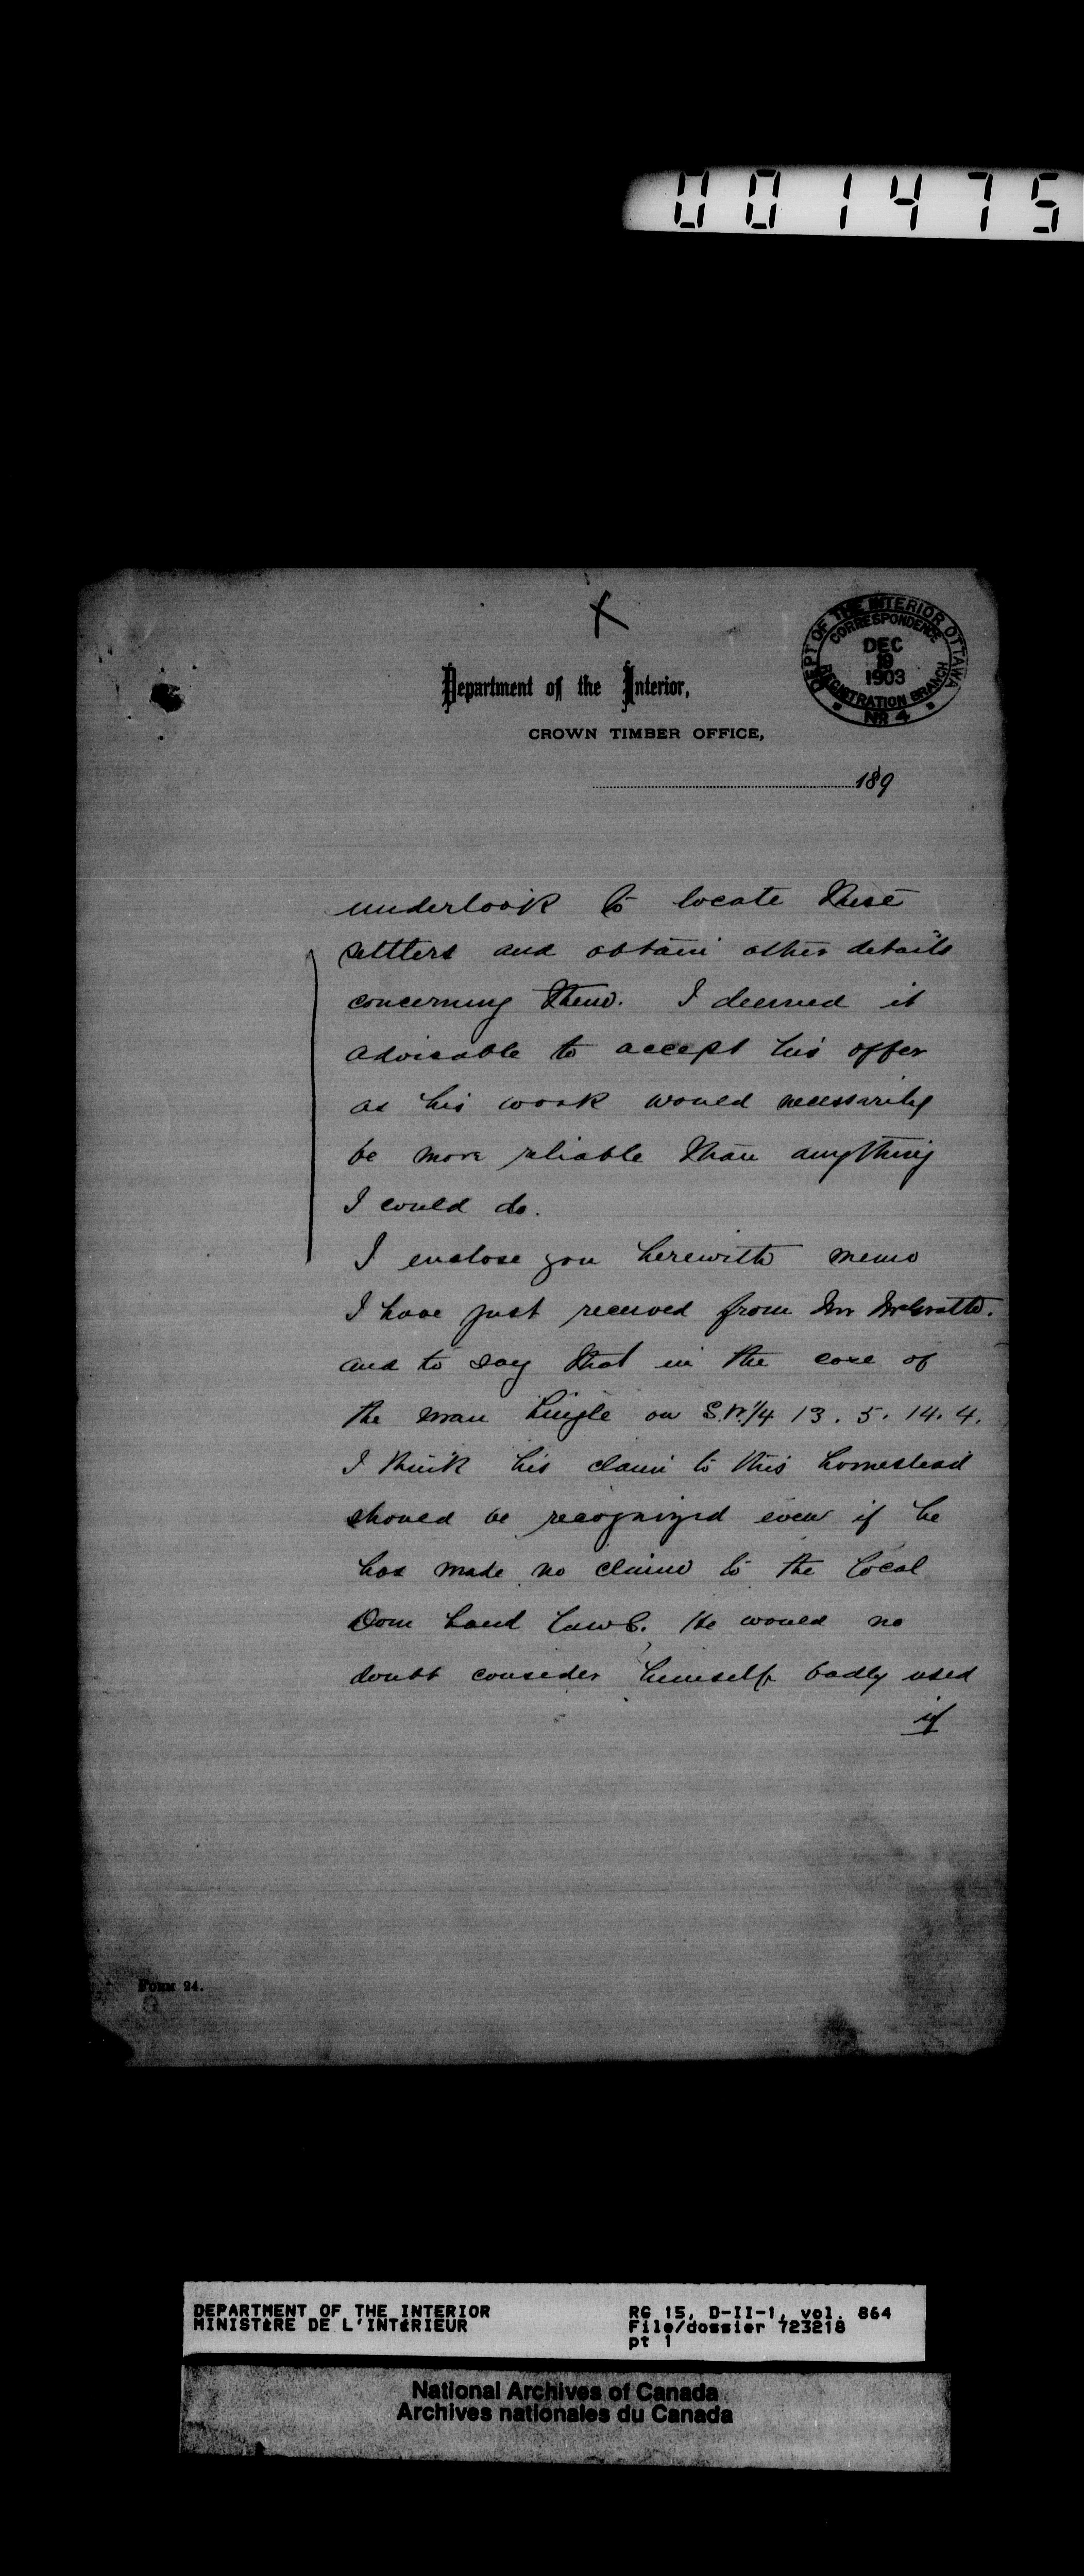 001475
X
DEPT OF THE INTERIOR OTTAWA
CORRESPONDENCE
DEC
19
1903
REGISTRATION BRANCH
NR 4
Department of the Interior,
CROWN TIMBER OFFICE,
189
undertook to locate these
settlers and obtain other details
concerning them. I deemed it
advisable to accept his offer
as his work would necessarily
be more reliable than anything
I could do.
I enclose you herewith memo
I have just received from Mr
and to say that in the case of
the man Lingle on 1/4 13. 5. 14. 4.
I think his claim to this homestead
should be recognized even if he
has made no claim to the local
Dom Land He would no
doubt consider himself badly used
if
FORM 94.
DEPARTMENT OF THE INTERIOR
MINISTÈRE DE L'INTÉRIEUR
RG 15, D-II-1, vol. 864
File/dossier 723218
pt 1
National Archives of Canada
Archives nationales du Canada